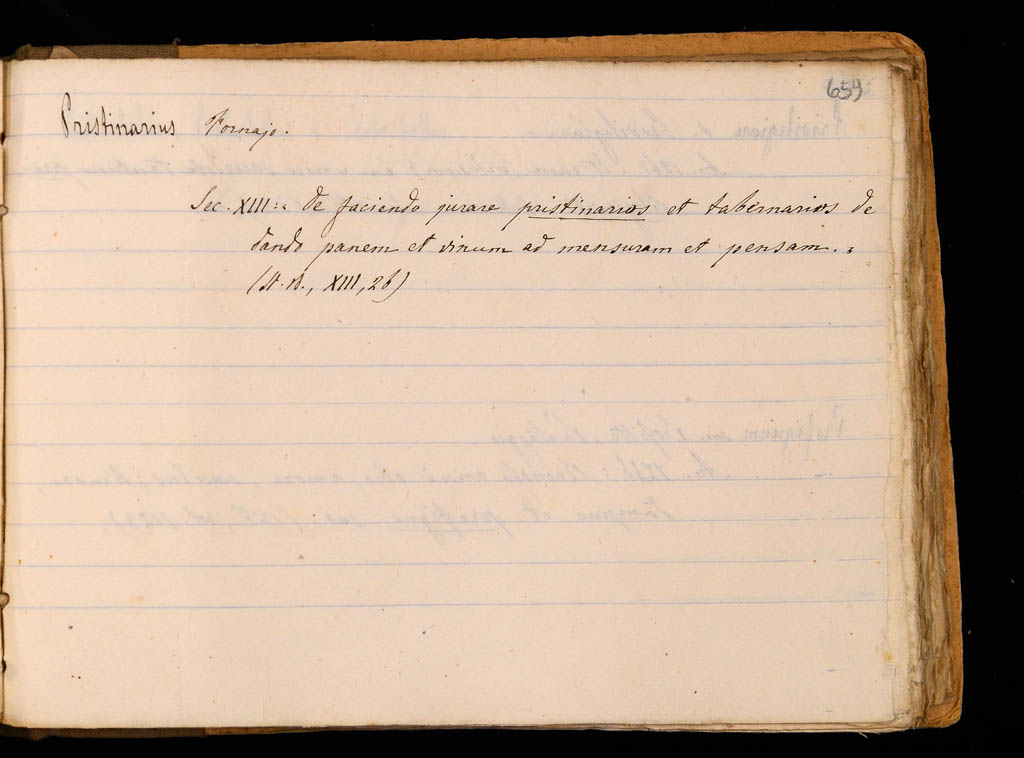 654
Pristinarius Fornajo.
Sec. XIII: « De faciendo jurare pristinarios et tabernarios de
dando panem et vinum ad mensuram et pensam. »
XIII, 26)